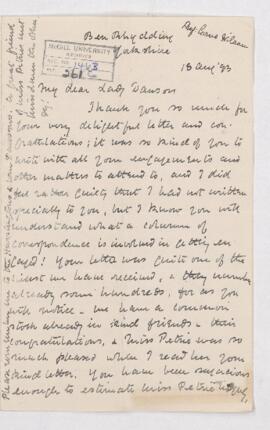 Ben Rhydding
Yorkshire
McGILL UNIVERSITY
ARCHIVES
ACC. NO. 1463
REF. 261c
18 Aug '93
My dear Lady Dawson
Thank you so much for
your very delightful letter and con-
gratulations; it was so kind of you to
write with all your engagements and
other matters to attend to, and I did
feel rather guilty that I had not written
specially to you, but I know you will
understand what a volume of
correspondence is involved in getting en-
gaged! Your letter was quite one of the
nicest we have received, & they number
already some hundreds, for as you
will notice - we have a common
stock already in kind friends & their
congratulations, & Miss Petrie was so
much pleased when I read her your
kind letter. You have been
enough to estimate Miss Petrie
Please remember me to the Harringtons &